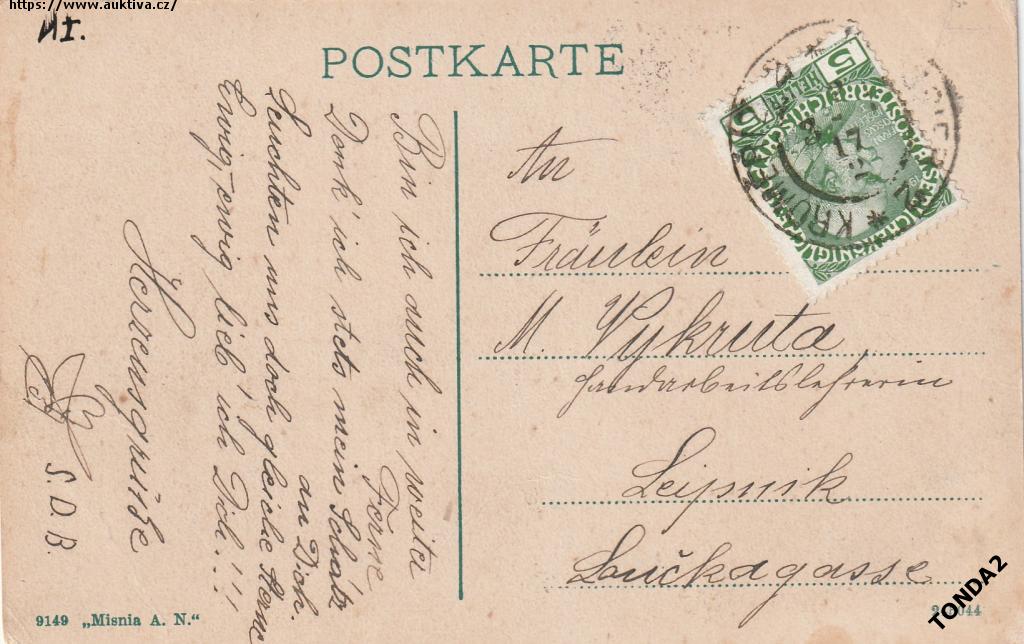 https://www.auktiva.cz/
VI.
POSTKARTE
Bin ich auch in weiter
Ferne
Denk' ich stets mein Schatz
an Dich.
Leuchten uns doch gleiche Sterne
Ewig, ewig lieb' ich Dich!!!
Herzensgrüße
S. D. B.
An
Fräulein
M. Vykruta
Handarbeitslehrerin
Leipnik
Lučkagasse
5
HELLER
5
KAISERLICHE KÖNIGLICHE ÖSTERREICHISCHE POST
17
9149 „Misnia A. N.“
TONDA2